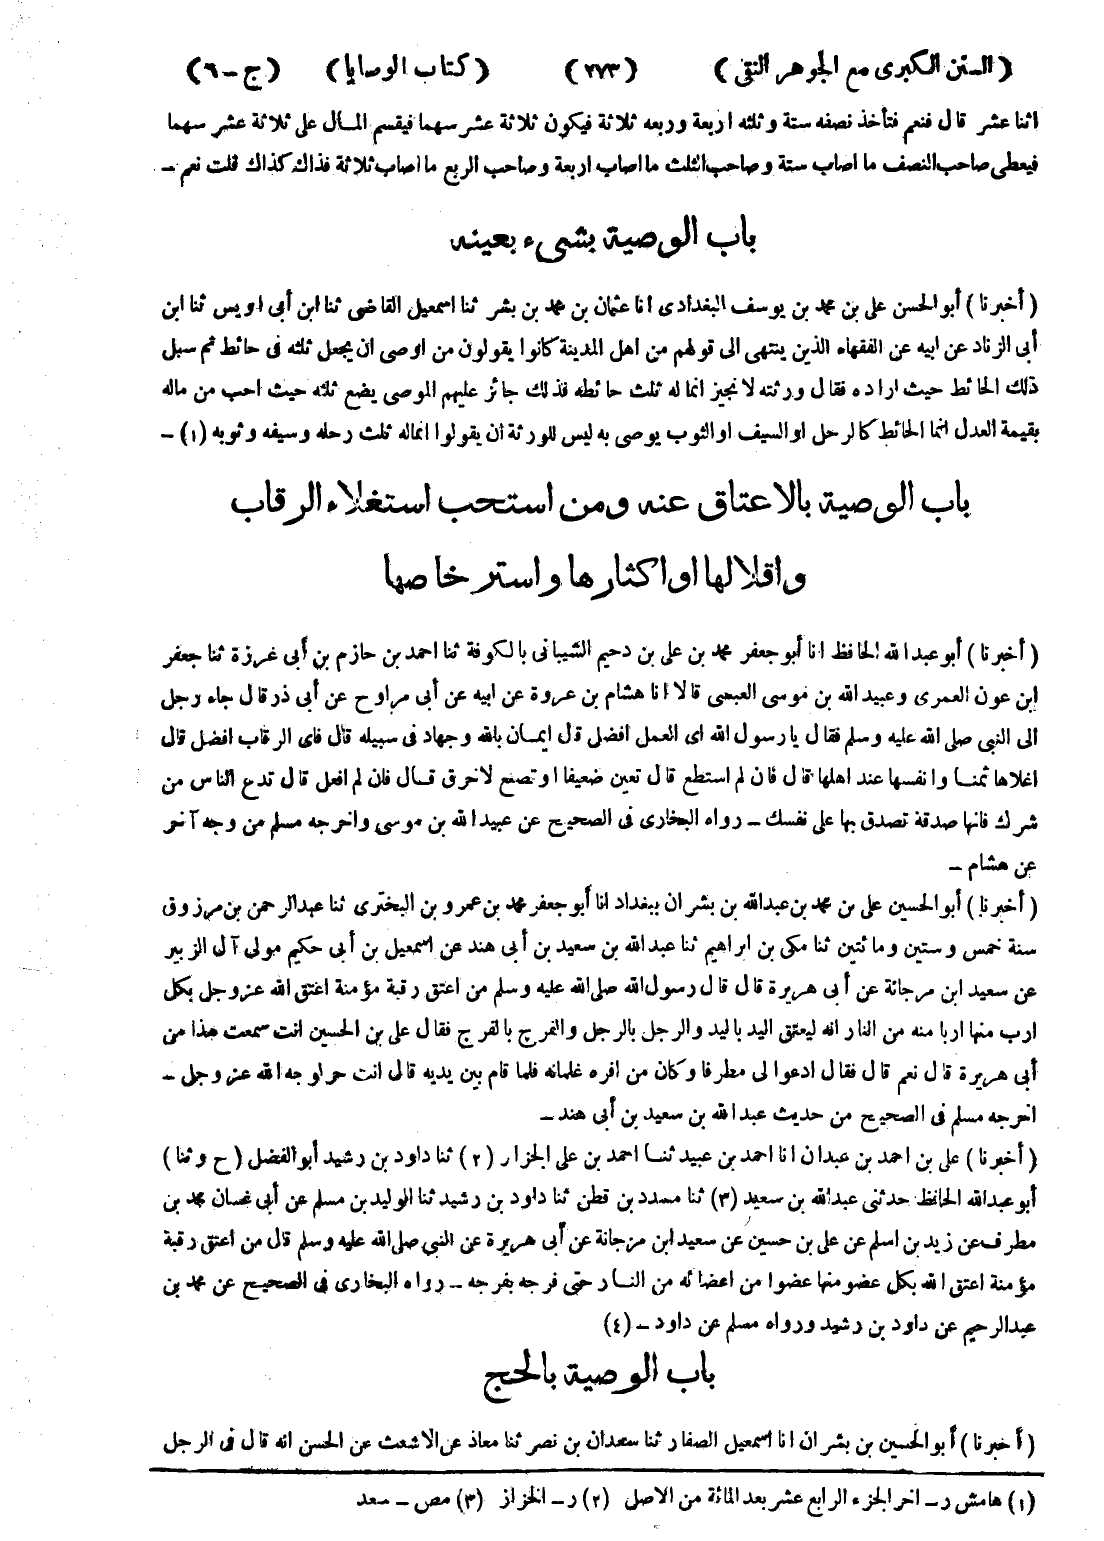 (السنن الكبرى مع الجوهر النقى) (٢٧٣) (كتاب الوصايا) (ج-٦)
اثنا عشر قال فنعم فتأخذ نصفه ستة وثلثه اربعة وربعه ثلاثة فيكون ثلاثة عشر سهما فيقسم المال على ثلاثة عشر سهما
فيعطى صاحب النصف ما اصاب ستة وصاحب الثلث ما اصاب اربعة وصاحب الربع ما اصاب ثلاثة فذاك كذاك قلت نعم -
باب الوصية بشىء بعينه
(أخبرنا) أبو الحسن على بن محمد بن يوسف البغدادى انا عثمان بن محمد بن بشر ثنا اسمعيل القاضى ثنا ابن أبى اويس ثنا ابن
أبى الزناد عن ابيه عن الفقهاء الذين ينتهى الى قولهم من اهل المدينة كانوا يقولون من اوصى ان يجعل ثلثه فى حائط ثم سبل
ذلك الحائط حيث اراده فقال ورثته لا نجيز انما له ثلث حائطه فذلك جائز عليهم الموصى يضع ثلثه حيث احب من ماله
بقيمة العدل انما الحائط كالرحل او السيف او الثوب يوصى به ليس للورثة ان يقولوا انماله ثلث رحله وسيفه وثوبه (١) -
باب الوصية بالاعتاق عنه ومن استحب استغلاء الرقاب
واقلالها او اكثارها واسترخاصها
(أخبرنا) أبو عبد الله الحافظ انا أبو جعفر محمد بن على بن دحيم الشيبانى بالكوفة ثنا احمد بن حازم بن أبى غرزة ثنا جعفر
ابن عون العمرى وعبيد الله بن موسى العبسى قالا انا هشام بن عروة عن ابيه عن أبى مراوح عن أبى ذر قال جاء رجل
الى النبى صلى الله عليه وسلم فقال يا رسول الله اى العمل افضل قال ايمان بالله وجهاد فى سبيله قال فاى الرقاب افضل قال
اغلاها ثمنا وانفسها عند اهلها قال فان لم استطع قال تعين ضعيفا او تصنع لاخرق قال فان لم افعل قال تدع الناس من
شرك فانها صدقة تصدق بها على نفسك - رواه البخارى فى الصحيح عن عبيد الله بن موسى واخرجه مسلم من وجه آخر
عن هشام -
(أخبرنا) أبو الحسين على بن محمد بن عبدالله بن بشران ببغداد انا أبو جعفر محمد بن عمرو بن البخترى ثنا عبدالرحمن بن مرزوق
سنة خمس وستين ومائتين ثنا مكى بن ابراهيم ثنا عبدالله بن سعيد بن أبى هند عن اسمعيل بن أبى حكيم مولى آل الزبير
عن سعيد ابن مرجانة عن أبى هريرة قال قال رسول الله صلى الله عليه وسلم من اعتق رقبة مؤمنة اعتق الله عزوجل بكل
ارب منها اربا منه من النار انه ليعتق اليد باليد والرجل بالرجل والفرج بالفرج فقال على بن الحسين انت سمعت هذا من
أبى هريرة قال نعم قال فقال ادعوا لى مطرفا وكان من افره غلمانه فلما قام بين يديه قال انت حر لوجه الله عزوجل -
اخرجه مسلم فى الصحيح من حديث عبدالله بن سعيد بن أبى هند -
(أخبرنا) على بن احمد بن عبدان انا احمد بن عبيد ثنا احمد بن على الجزار (٢) ثنا داود بن رشيد أبو الفضل (ح وثنا)
أبو عبدالله الحافظ حدثنى عبدالله بن سعيد (٣) ثنا مسدد بن قطن ثنا داود بن رشيد ثنا الوليد بن مسلم عن أبى غسان محمد بن
مطرف عن زيد بن اسلم عن على بن حسين عن سعيد ابن مرجانة عن أبى هريرة عن النبى صلى الله عليه وسلم قال من اعتق رقبة
مؤمنة اعتق الله بكل عضو منها عضوا من اعضائه من النار حتى فرجه بفرجه - رواه البخارى فى الصحيح عن محمد بن
عبدالرحيم عن داود بن رشيد ورواه مسلم عن داود - (٤)
باب الوصية بالحج
(أخبرنا) أبو الحسين بن بشران انا اسمعيل الصفار ثنا سعدان بن نصر ثنا معاذ عن الاشعث عن الحسن انه قال فى الرجل
(١) هامش ر - اخر الجزء الرابع عشر بعد المائة من الاصل (٢) ر - الخزاز (٣) مص - سعد